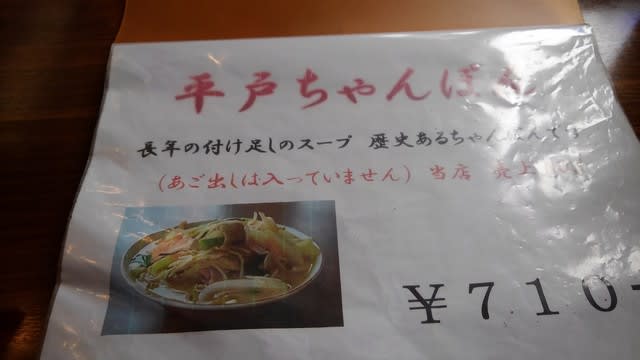 平戸ちゃんぽん
長年の付け足しのスープ 歴史あるちゃんぽんです
(あご出しは入っていません) 当店 売上
￥710